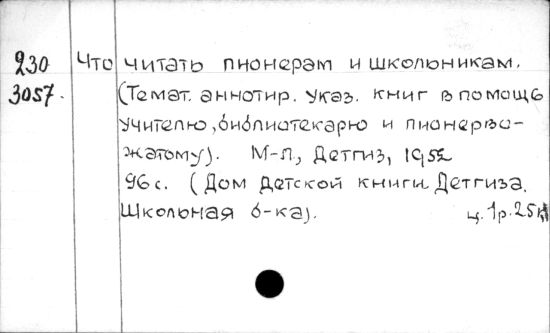 230 Что читать пионерам и школьникам.
3057. (Темат. аннотир. указ. книг в помощь
учителю, библиотекарю и пионерво-
жатому). М-Л., Детгиз, 1952
96 с. (Дом детской книги Детгиза.
Школьная б-ка). ц. 1р. 25к